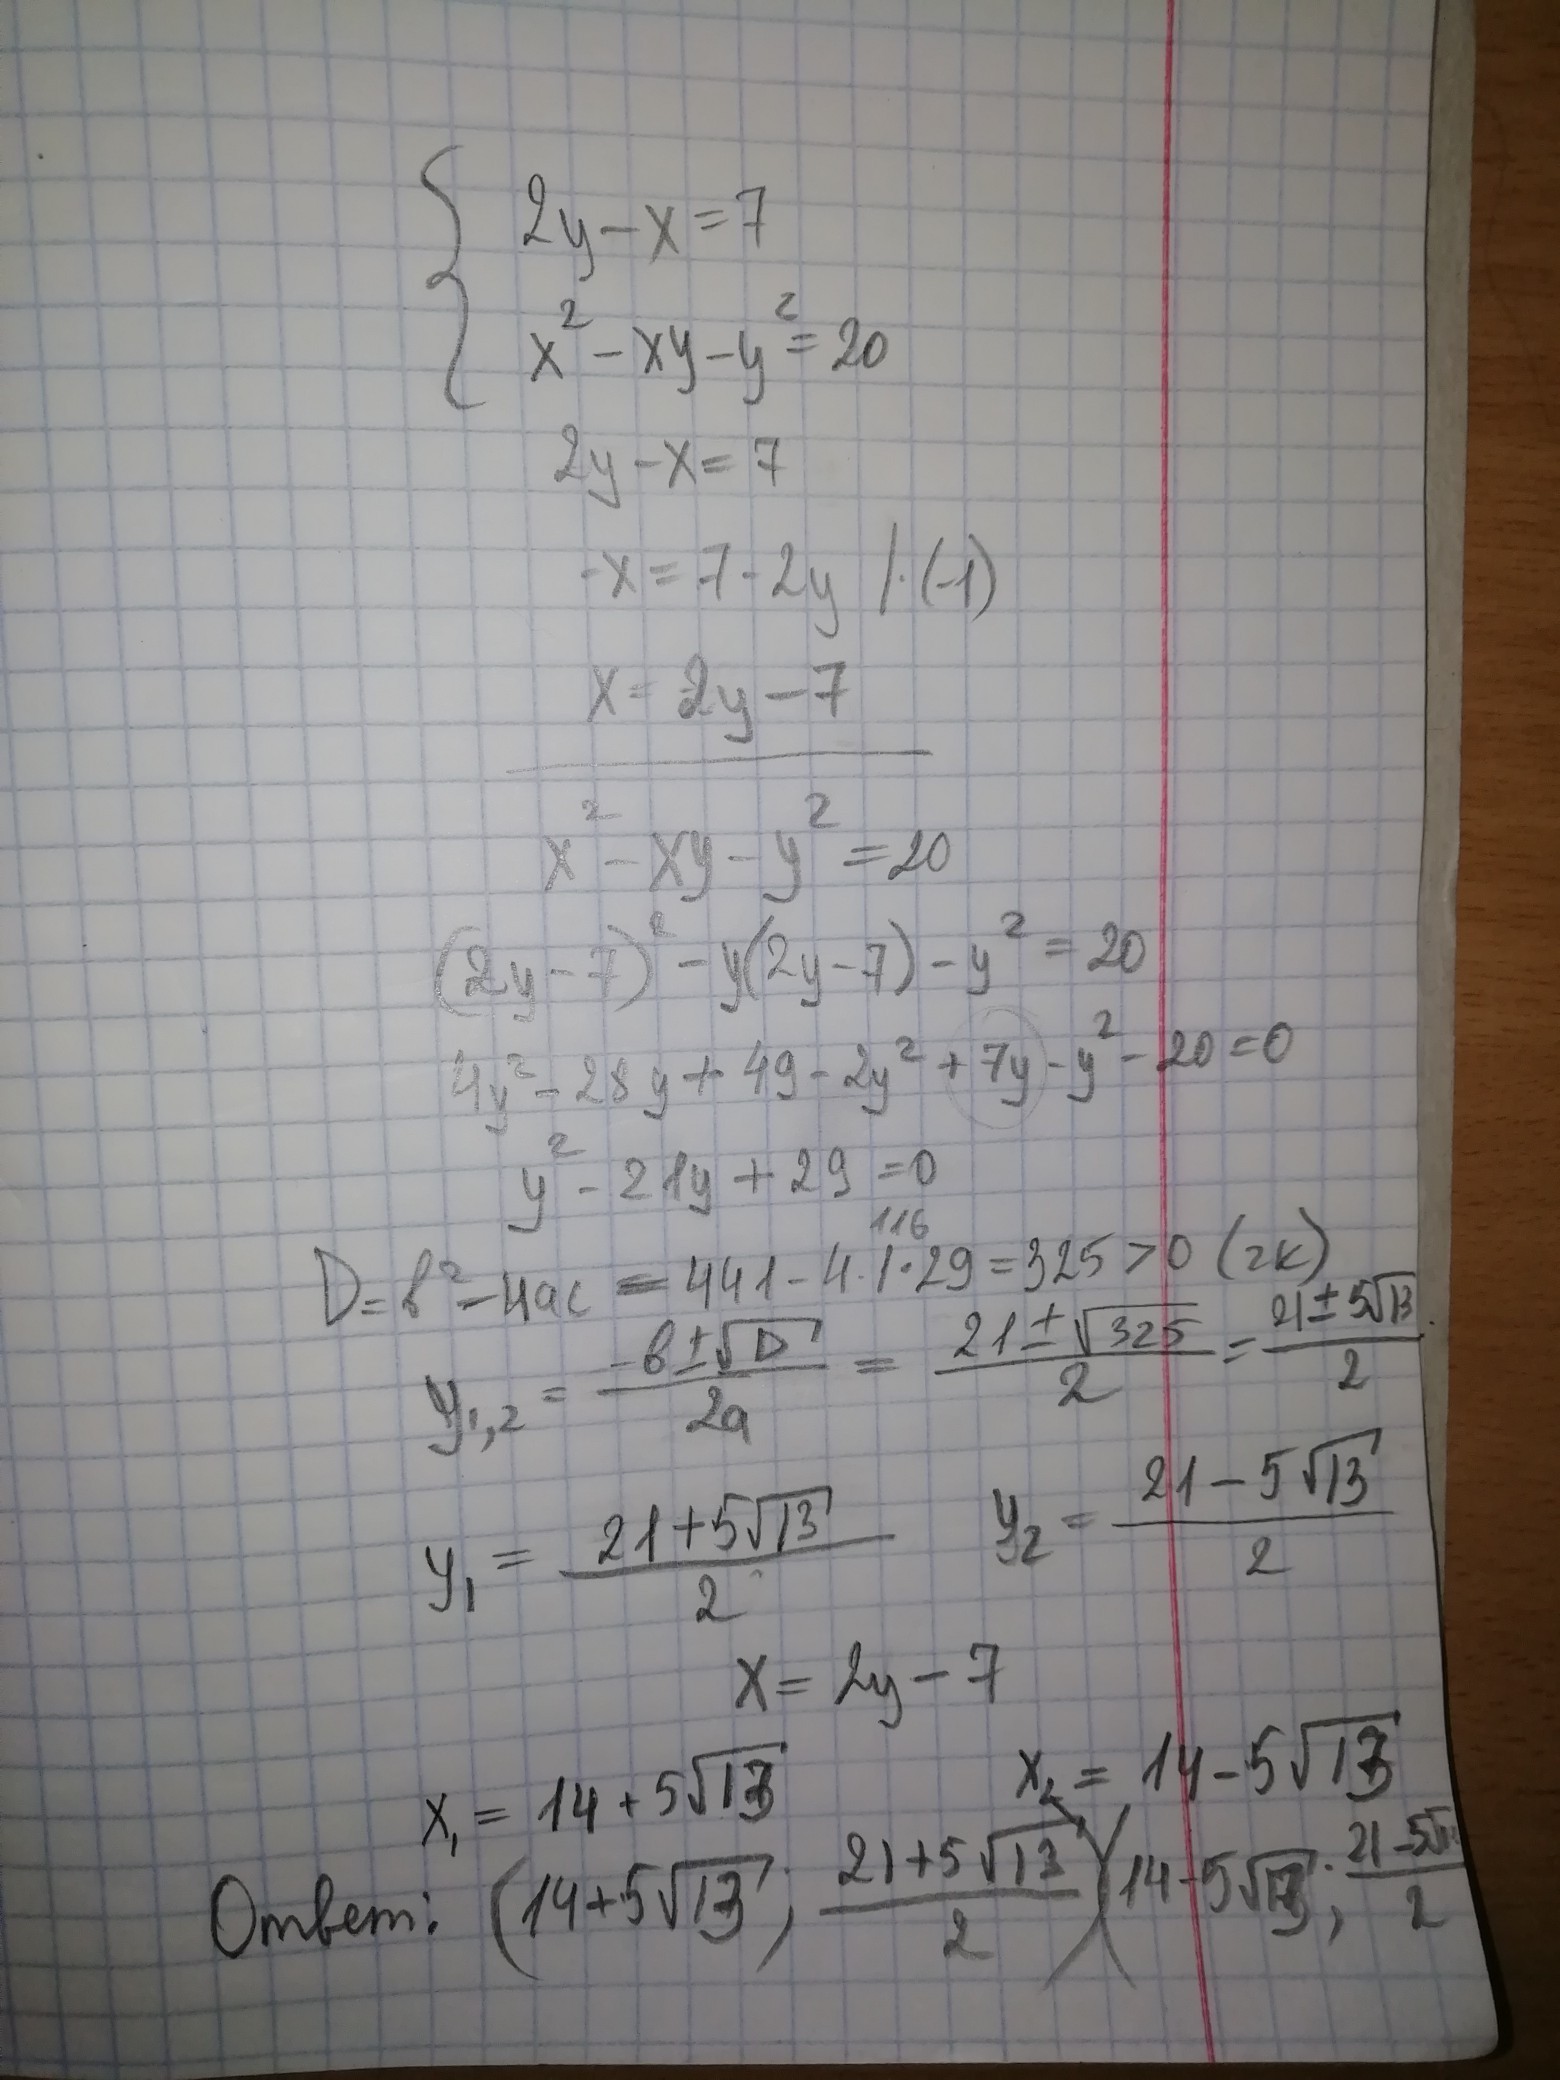 2y-x=7
x²-xy-y²=20
2y-x=7
-x=7-2y /·(-1)
x=2y-7
x²-xy-y²=20
(2y-7)²-y(2y-7)-y²=20
4y²-28y+49-2y²+7y-y²-20=0
y²-21y+29=0
116
D=b²-4ac=441-4·1·29=325>0 (2к)
y₁,₂=(-b±√D)/2a=(21±√325)/2=(21±5√13)/2
y₁=(21+5√13)/2 y₂=(21-5√13)/2
x=2y-7
x₁=14+5√13 x₂=14-5√13
Ответ: (14+5√13; (21+5√13)/2)(14-5√13; (21-5√13)/2